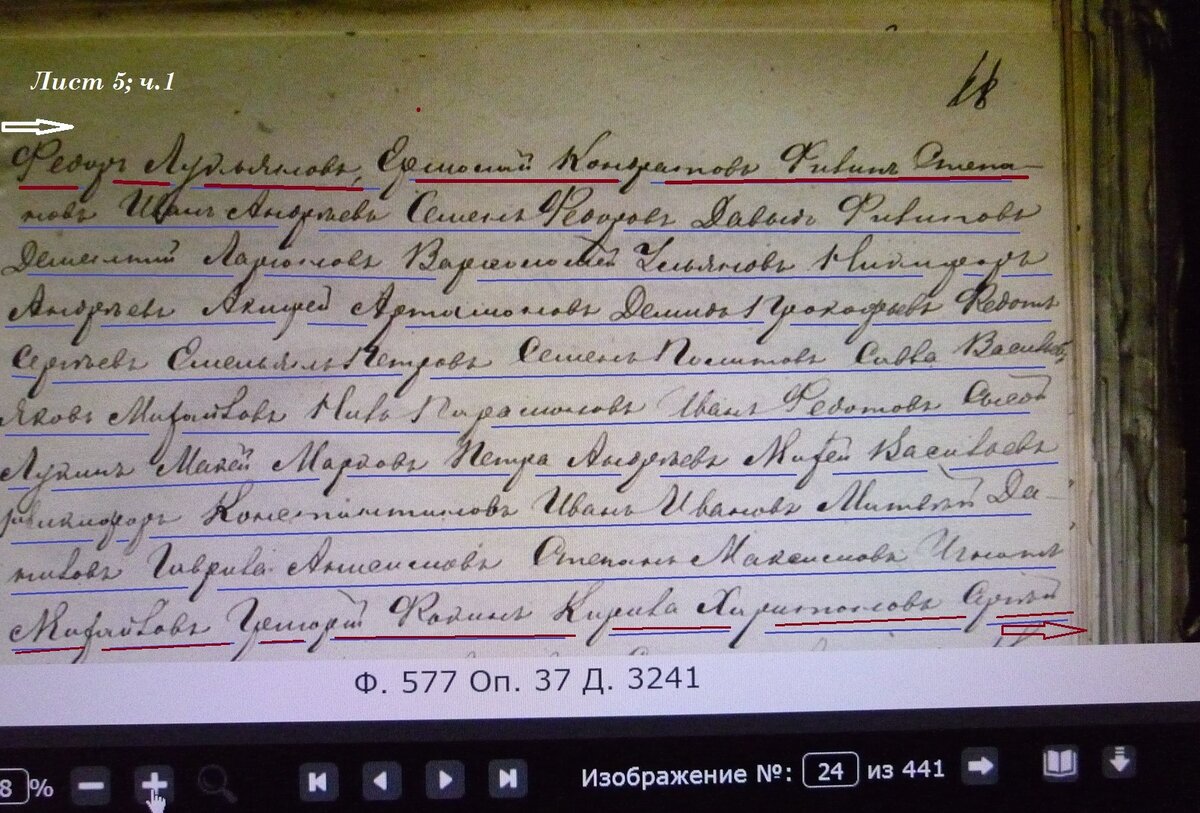 Лист 5; ч.1
Федоръ Лукьяновъ, Ермолай Кондратовъ Филипъ Степа-
новъ Иванъ Андреевъ Семенъ Федоровъ Давыдъ Филиповъ
Дементий Ларионовъ Варфоломей Ульяновъ Никифоръ
Андреевъ Акифей Артамоновъ Демидъ Прокофьевъ Федотъ
Сергеевъ Емельянъ Петровъ Семенъ Политовъ Савва Василь
Яковъ Михайловъ Нилъ Парамоновъ Иванъ Федотовъ
Лукинъ Макей Марковъ Петръ Андреевъ Михей Васильевъ
Никифоръ Константиновъ Иванъ Ивановъ Матвей Да-
ниловъ Гаврила Анисимовъ Степанъ Максимовъ Игнатъ
Михайловъ Григорий Фокинъ Кирила Харитоновъ Сергей
Ф. 577 Оп. 37 Д. 3241
8 %
Изображение №: 24 из 441